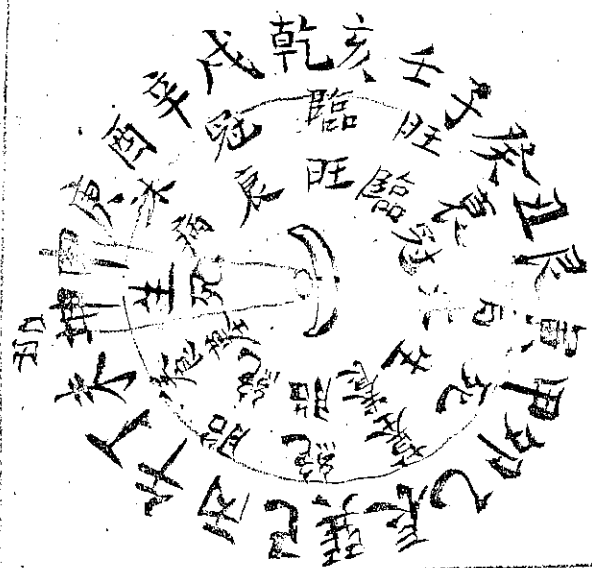 乾亥壬子癸丑艮寅甲卯乙辰巽巳丙午丁未坤申庚酉辛戌
臨旺衰病死墓絕胎養生沐冠
旺臨冠沐生養胎絕墓死病衰